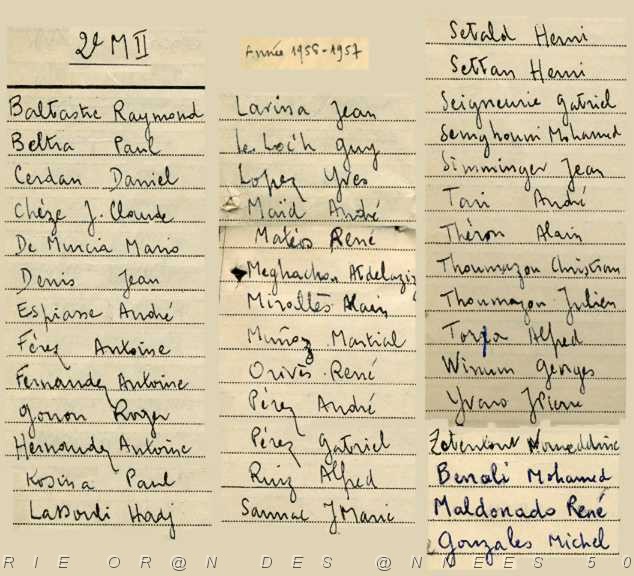 2e M II
Baltastre Raymond
Beltra Paul
Cerdan Daniel
Chèze J. Claude
De Murcia Mario
Denis Jean
Espiasse André
Férez Antoine
Fernandez Antoine
Gonon Roger
Hernandez Antoine
Kosina Paul
Hadj
Année 1956-1957
Larina Jean
Le Loc'h Guy
Lopez Yves
Maïd André
Matéo René
Meghachou Abdelaziz
Mirallès Alain
Muñoz Martial
Orivès René
Pérez André
Pérez Gabriel
Ruiz Alfred
Saunac J Marie
Sebald Henri
Settan Henri
Seigneurie Gabriel
Semghouni Mohamed
Simminger Jean
Tari André
Théron Alain
Thoumazou Christian
Thoumazou Julien
Alfred
Winum Georges
Yvars JPierre
Noureddine
Benali Mohamed
Maldonado René
Gonzales Michel
RIE OR@N DES @NNEES 50